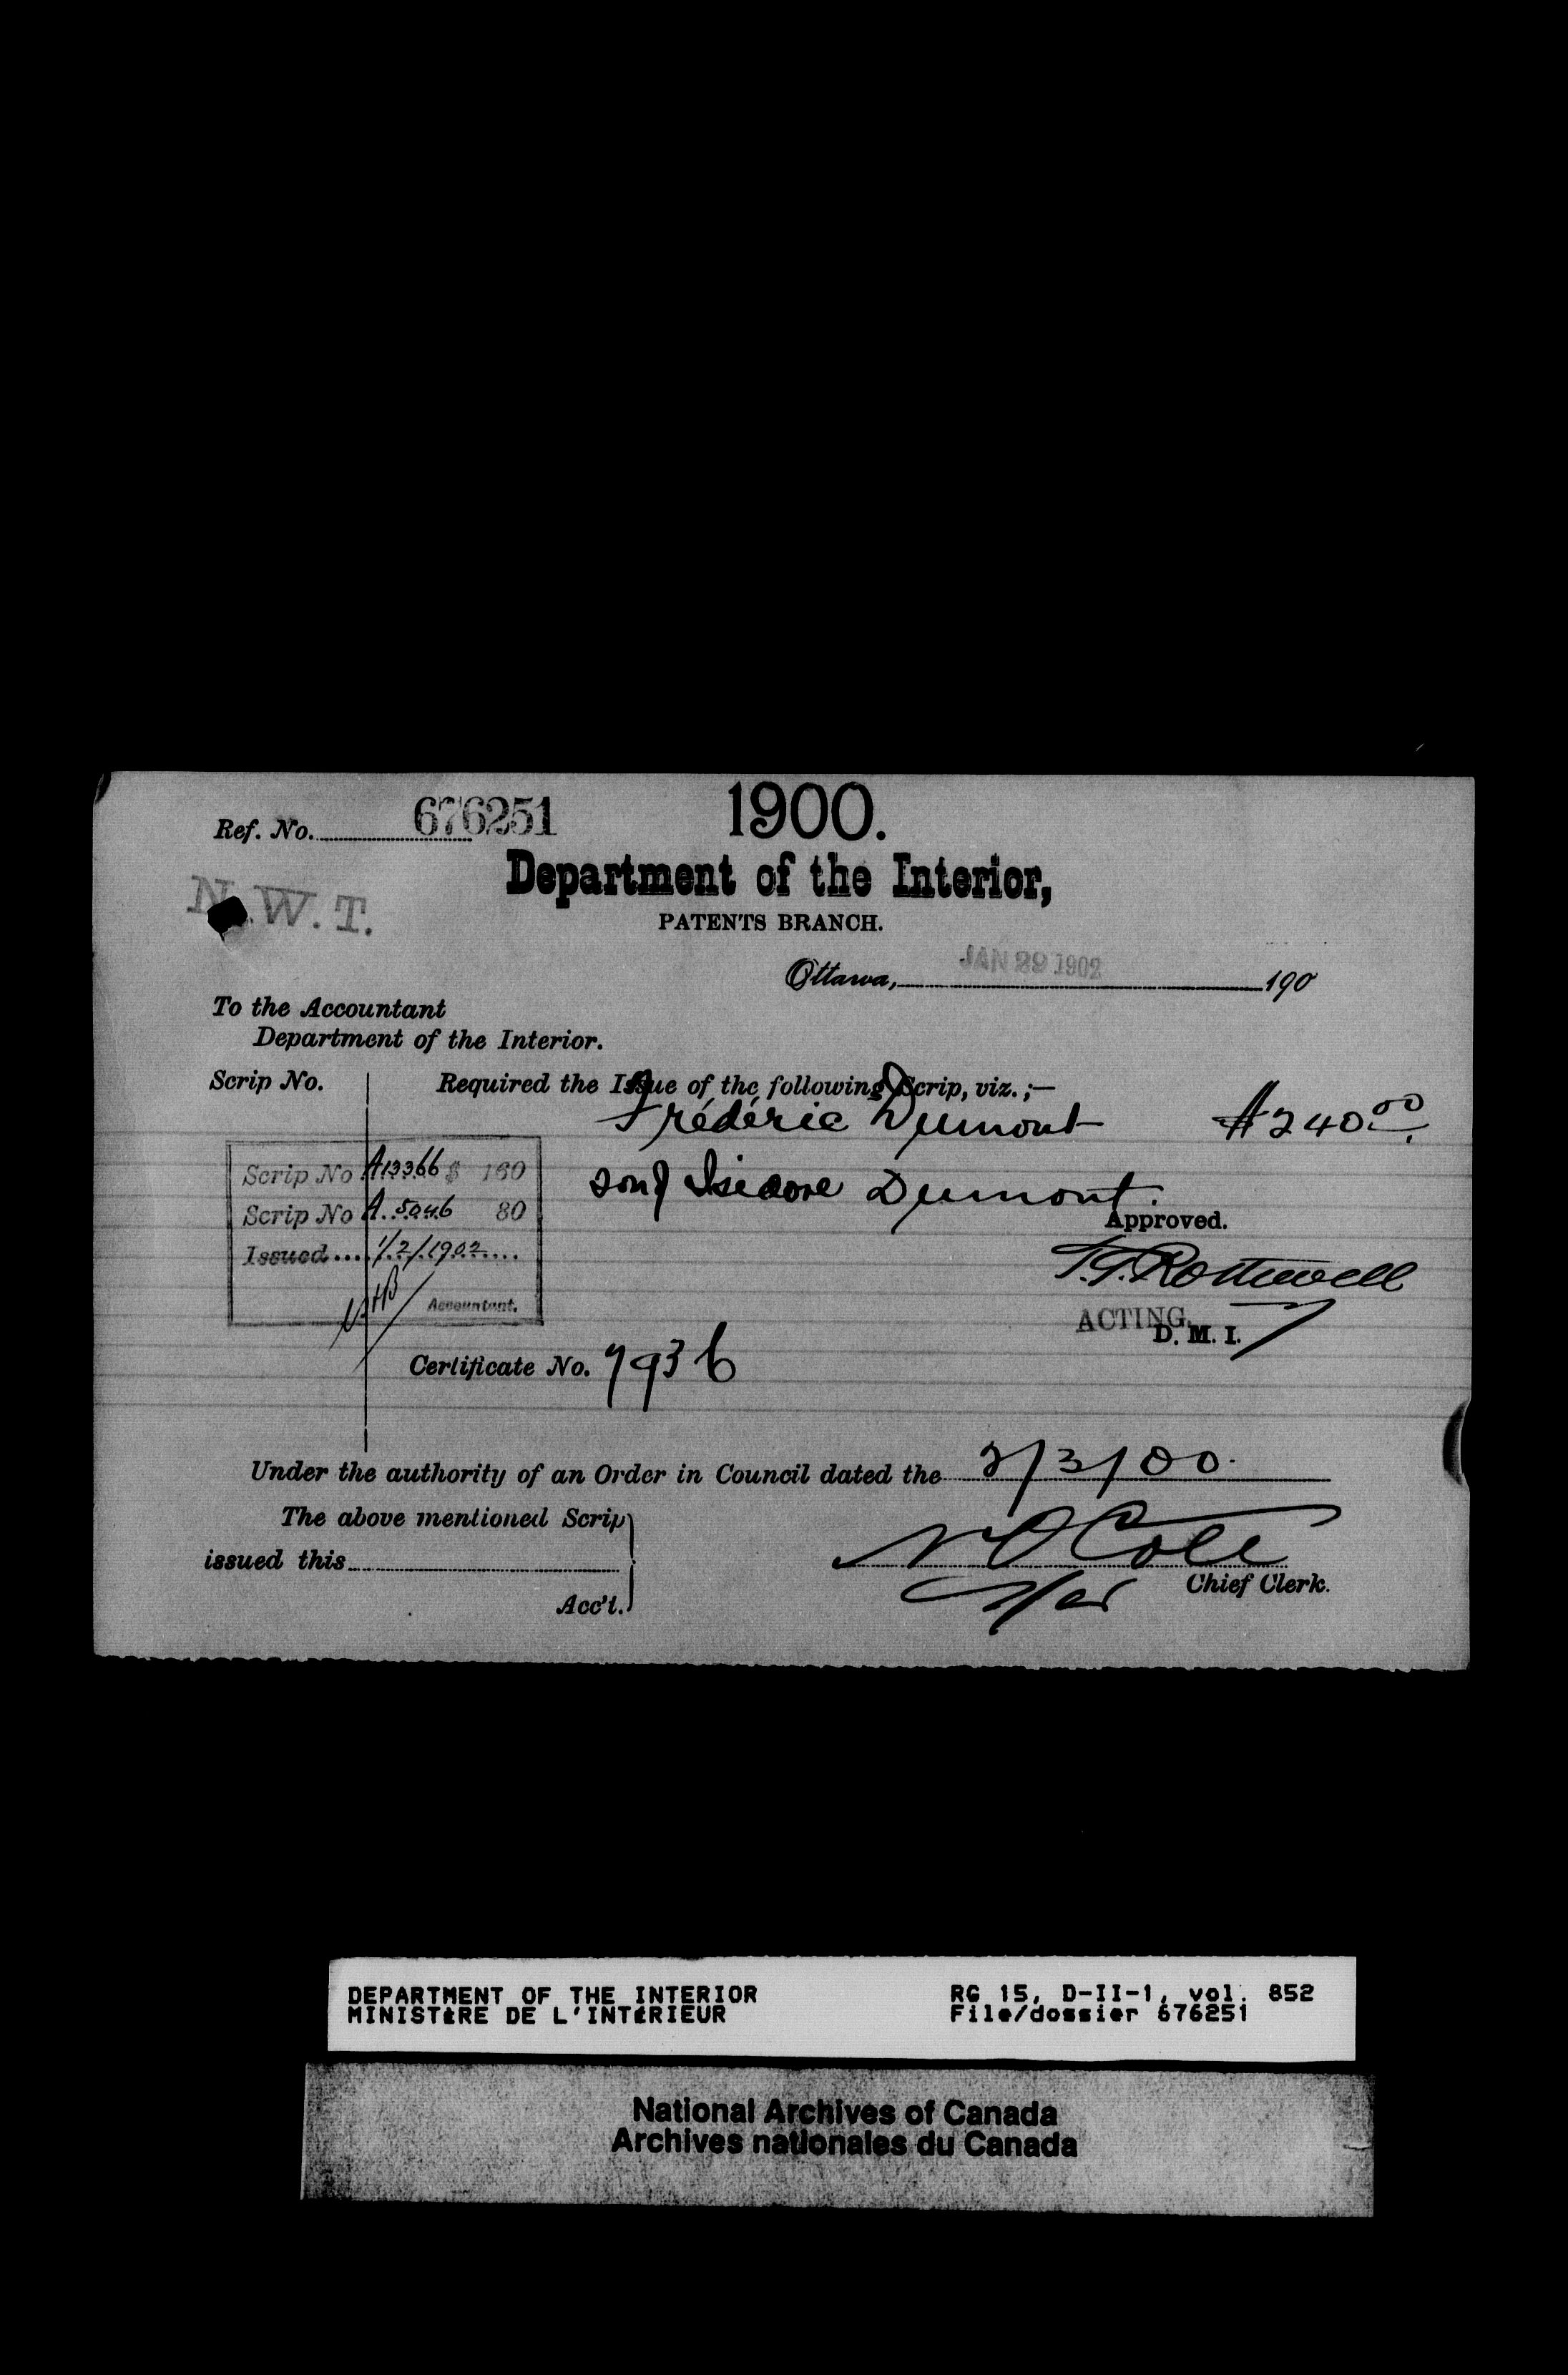 Ref. No. 676251
1900.
N.W.T.
Department of the Interior,
PATENTS BRANCH.
Ottawa, JAN 29 1902 190
To the Accountant
Department of the Interior.
Scrip No.
Required the Issue of the following Scrip, viz.;—
Frédéric Dumont $240.00
son of Isidore Dumont.
Scrip No A13366 $ 160
Scrip No A.5046 80
Issued.... 1/2/1902....
Accountant.
Approved.
T.G. Rothwell
ACTING.
D. M. I.
Certificate No. 793 b
Under the authority of an Order in Council dated the 2/3/00.
The above mentioned Scrip
issued this
Acc't.
N O Coté
Chief Clerk.
DEPARTMENT OF THE INTERIOR
MINISTÈRE DE L'INTÉRIEUR
RG 15, D-II-1, vol. 852
File/dossier 676251
National Archives of Canada
Archives nationales du Canada